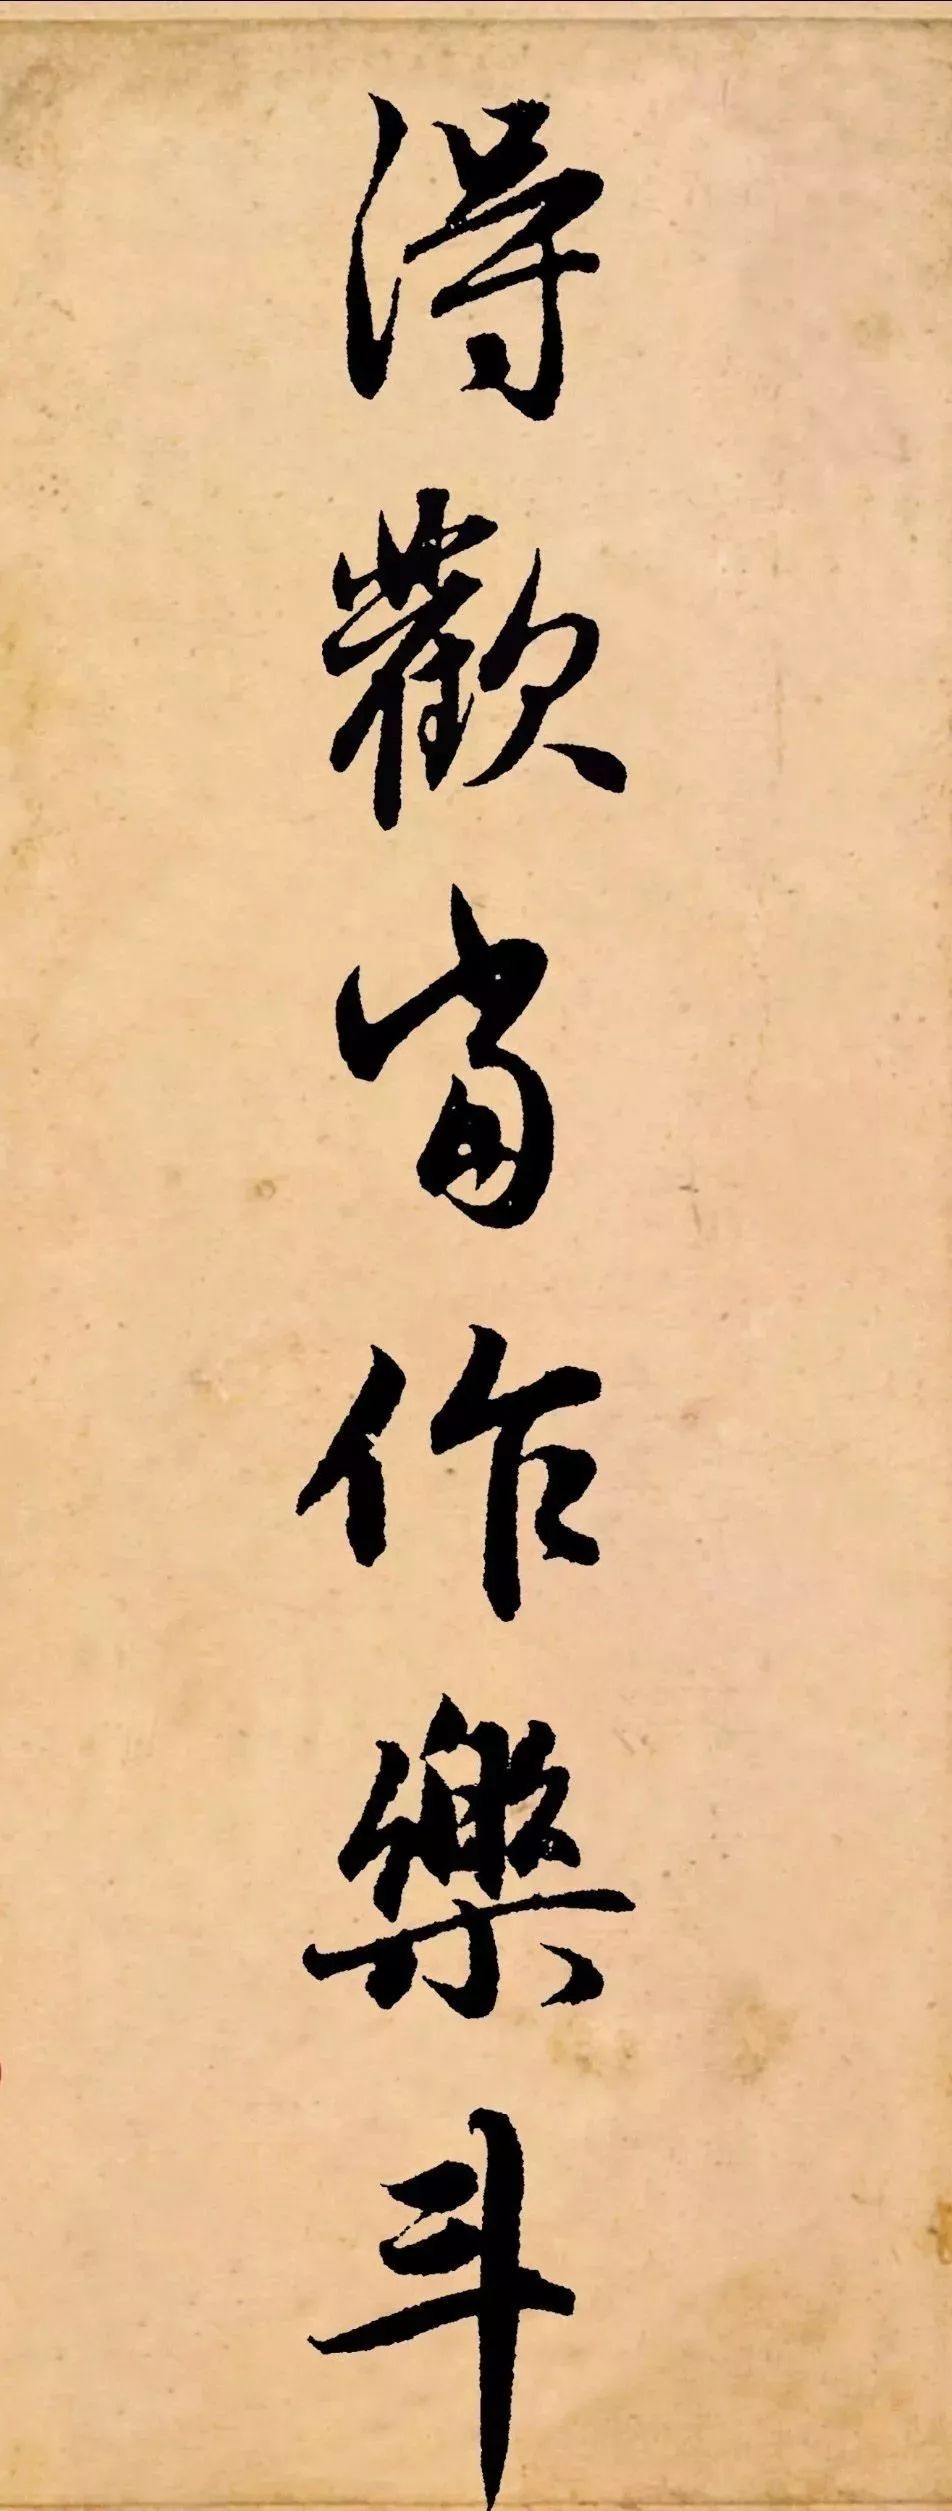 得歡當作樂斗